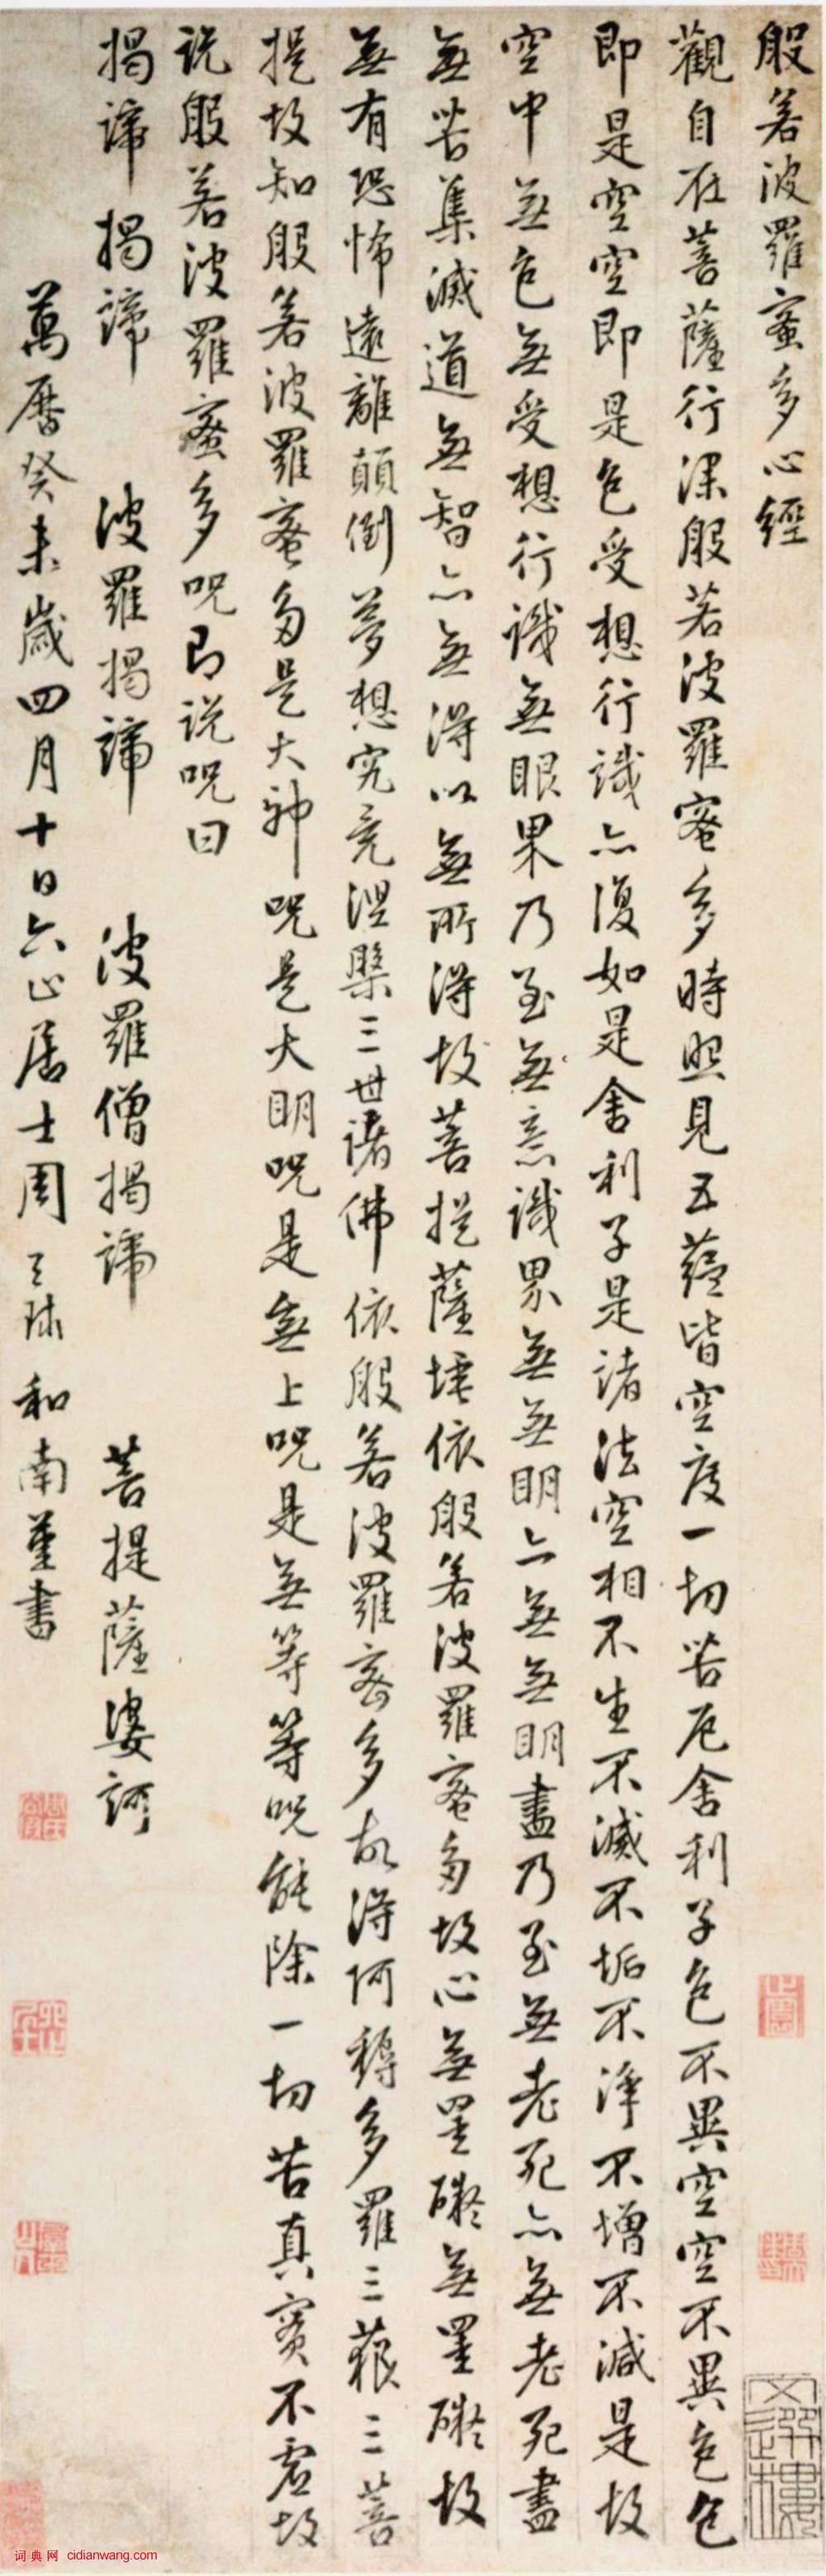 般若波羅蜜多心經
觀自在菩薩行深般若波羅蜜多時照見五蘊皆空度一切苦厄舍利子色不異空空不異色色
即是空空即是色受想行識亦復如是舍利子是諸法空相不生不滅不垢不淨不增不減是故
空中無色無受想行識無眼果乃至無意識界無無明亦無無明盡乃至無老死亦無老死盡
無苦集滅道無智亦無得以無所得故菩提薩埵依般若波羅蜜多故心無罣礙無罣礙故
無有恐怖遠離顛倒夢想究竟涅槃三世諸佛依般若波羅蜜多故得阿耨多羅三藐三菩
提故知般若波羅蜜多是大神呪是大明呪是無上呪是無等等呪能除一切苦真實不虛故
說般若波羅蜜多呪即說呪曰
揭諦揭諦 波羅揭諦 波羅僧揭諦 菩提薩婆訶
萬曆癸未歲四月十日六止居士周天球和南堇書
文選樓
词典网 cidianwang.com